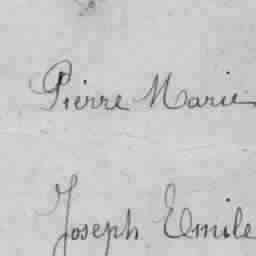 Pierre Marie
Joseph Emile